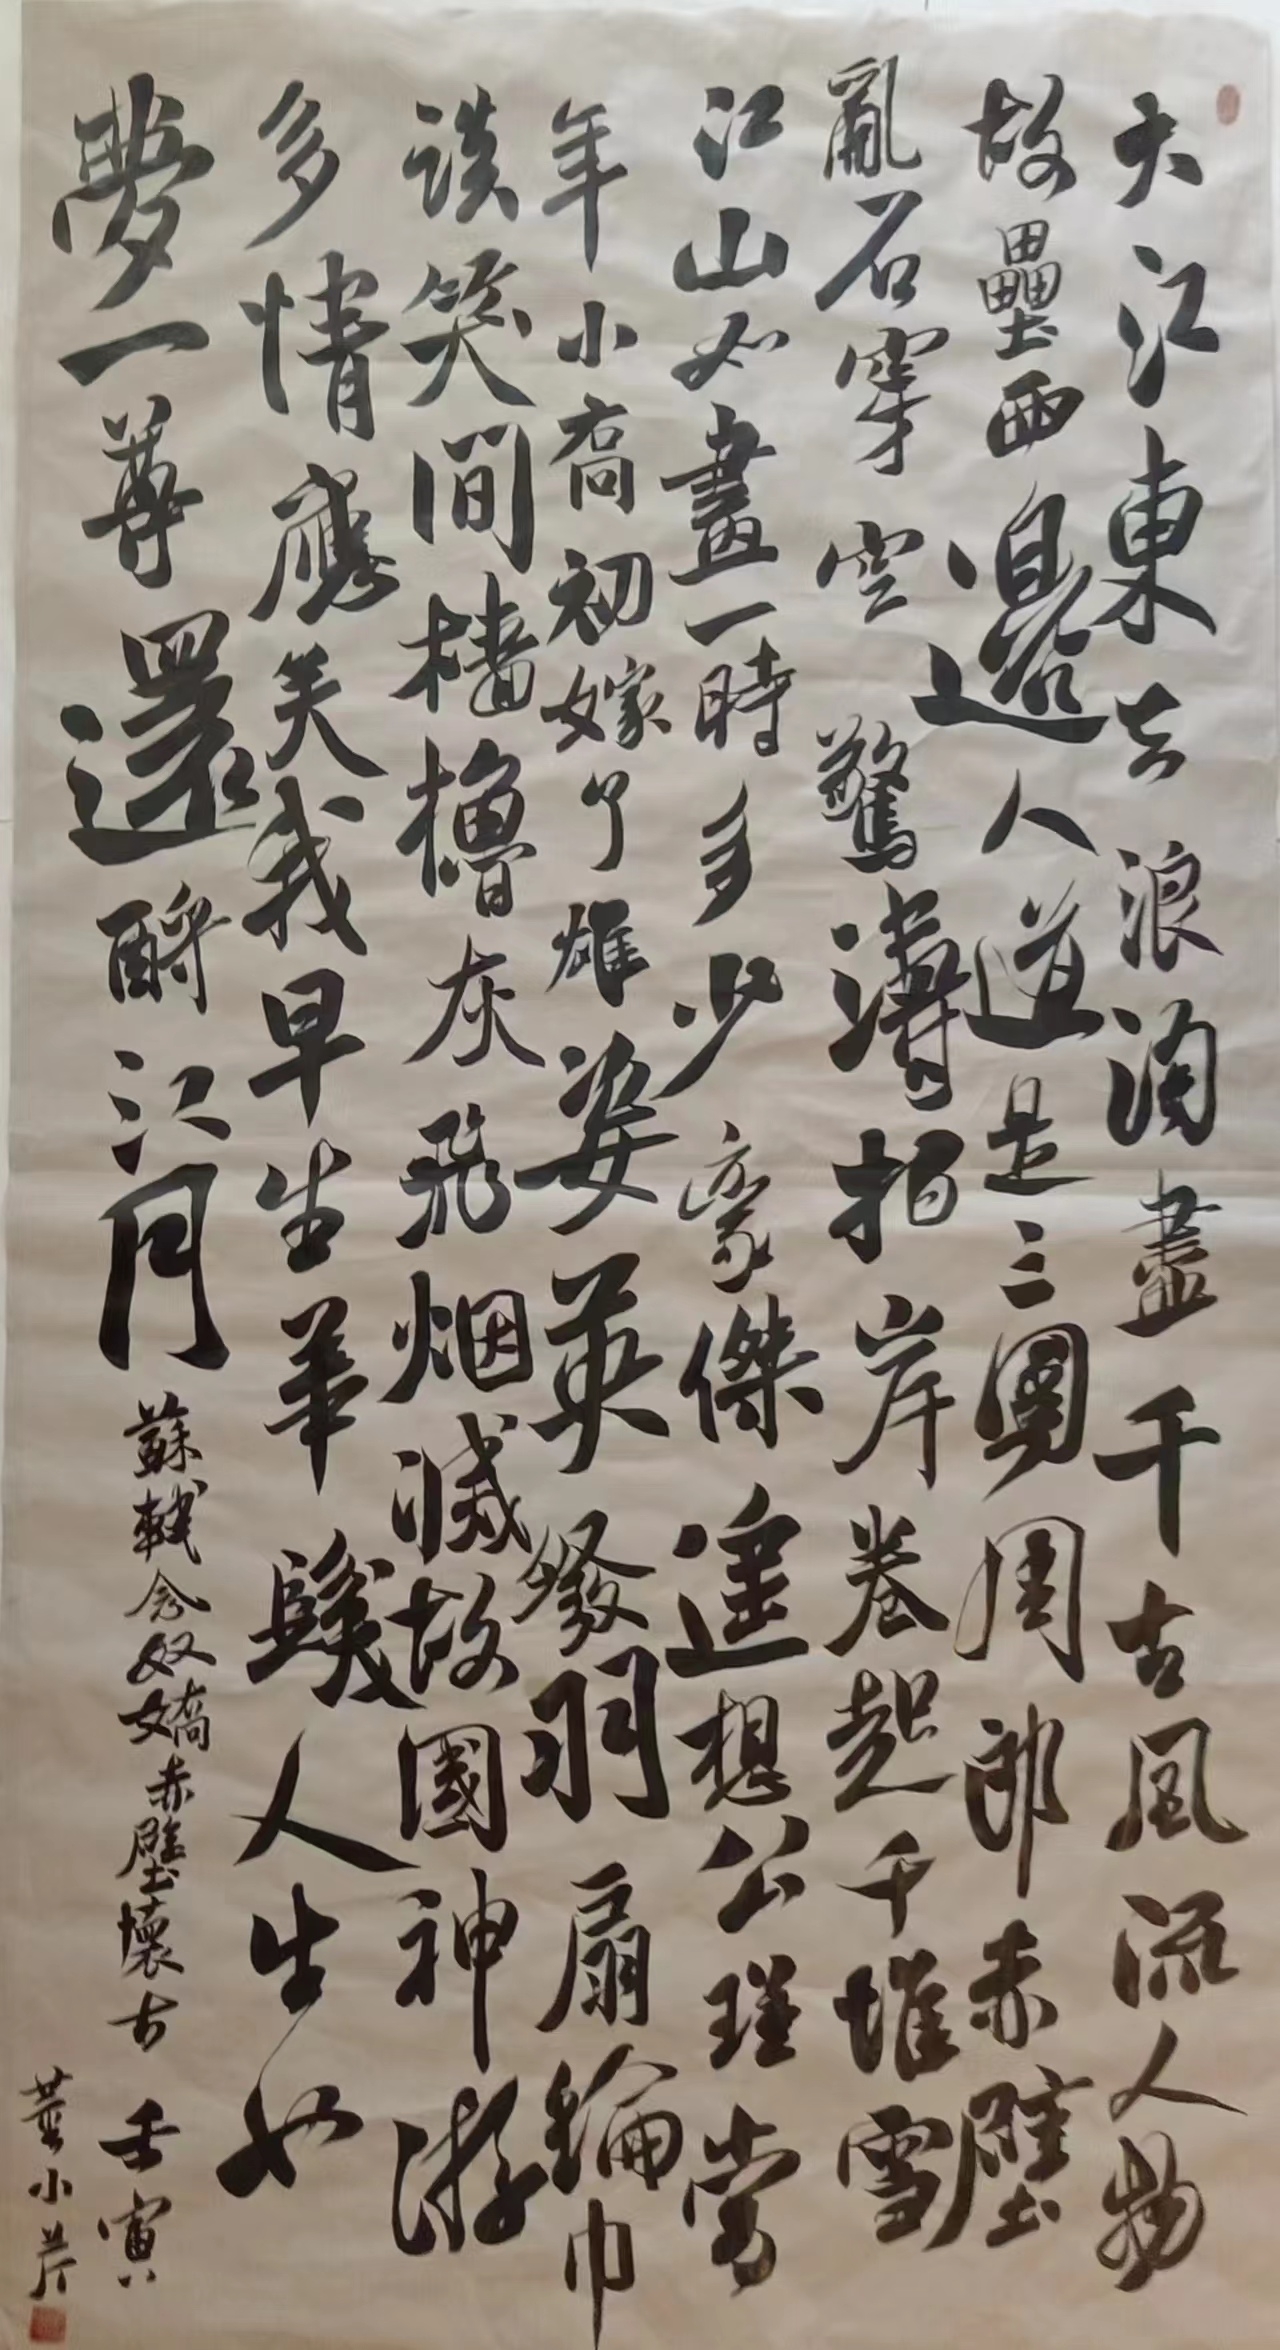 大江東去浪淘盡千古風流人物
故壘西邊人道是三國周郎赤壁
亂石穿空驚濤拍岸卷起千堆雪
江山如畫一時多少豪傑遙想公瑾當
年小喬初嫁了雄姿英發羽扇綸巾
談笑間檣櫓灰飛烟滅故國神游
多情應笑我早生華髮人生如
夢一尊還酹江月
蘇軾念奴嬌赤壁懷古 壬寅
小芹